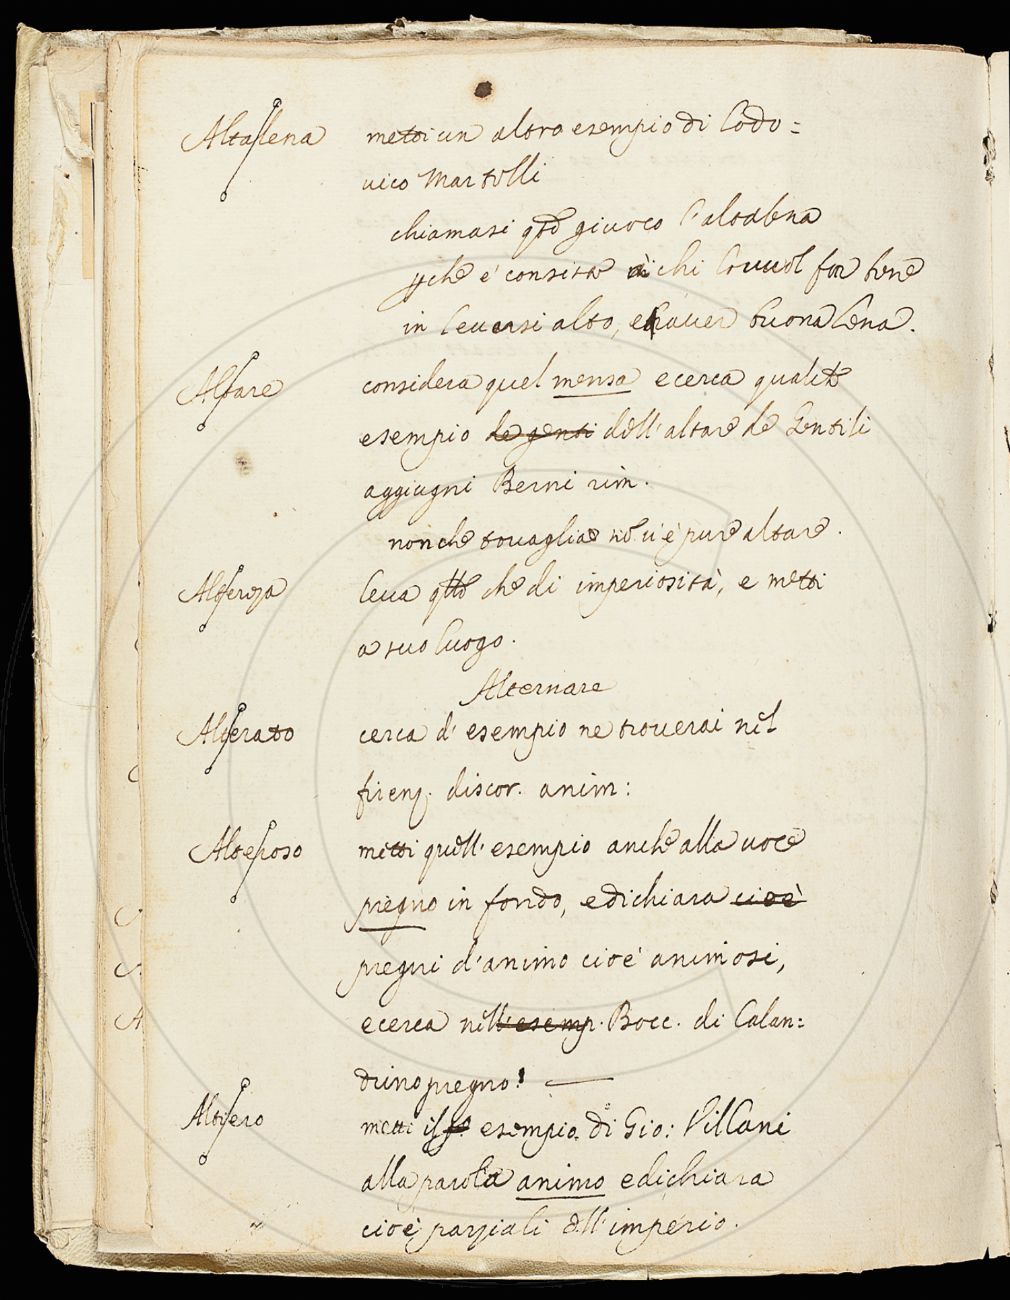 Altalena metti un altro esempio di Lodo=
uico Martelli
chiamasi qto giuoco l'altalena
pche e' consiste à chi lo uuol far bene
in leuarsi alto, et hauer buona lena.
Altare considera quel mensa e cerca qualche
esempio de genti dell'altare de Gentili
aggiugni Berni rim.
non che touaglia no u'è pure altare.
Alterezza leua qto che di imperiosità, e metti
a suo luogo.
Alternare
Alterato cerca d'esempio ne trouerai nel
firenz. discor. anim:
Alteroso metti quell'esempio anche alla uoce
pregno in fondo, e dichiara cioè
pregni d'animo cioè animosi,
e cerca nell'esemp. Bocc. di Calan=
drino pregno.
Altiero metti esempio di Gio: Villani
alla parola animo e dichiara
cioè parziali dll'imperio.